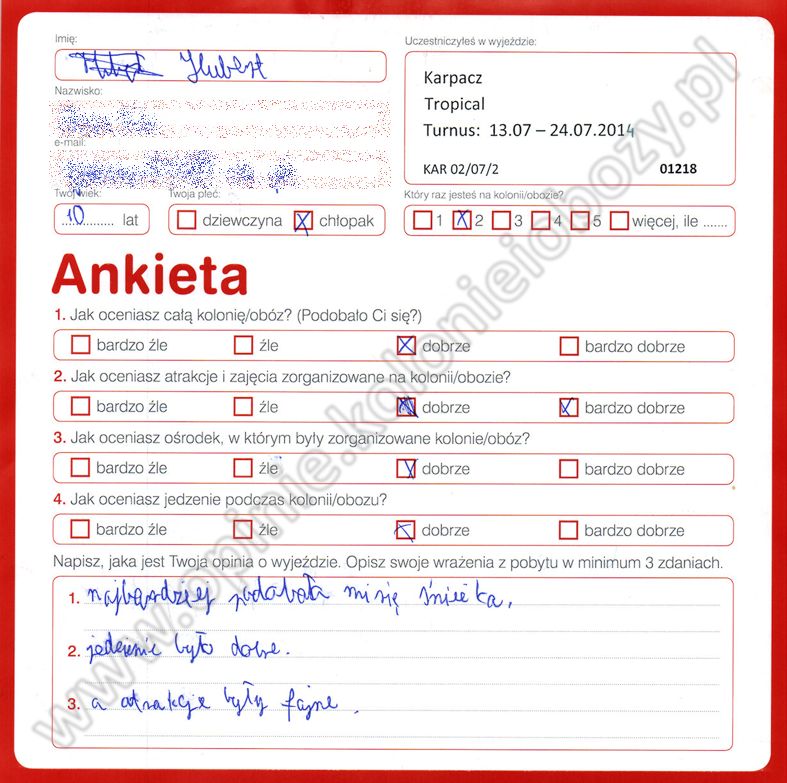 Imię:
Hubert
Uczestniczyłeś w wyjeździe:
Karpacz
Tropical
Turnus: 13.07 – 24.07.2014
KAR 02/07/2
01218
Nazwisko:
e-mail:
Twój wiek:
10 lat
Twoja płeć:
dziewczyna chłopak
Który raz jesteś na kolonii/obozie?
1 2 3 4 5 więcej, ile .......
Ankieta
1. Jak oceniasz całą kolonię/obóz? (Podobało Ci się?)
bardzo źle źle dobrze bardzo dobrze
2. Jak oceniasz atrakcje i zajęcia zorganizowane na kolonii/obozie?
bardzo źle źle dobrze bardzo dobrze
3. Jak oceniasz ośrodek, w którym były zorganizowane kolonie/obóz?
bardzo źle źle dobrze bardzo dobrze
4. Jak oceniasz jedzenie podczas kolonii/obozu?
bardzo źle źle dobrze bardzo dobrze
Napisz, jaka jest Twoja opinia o wyjeździe. Opisz swoje wrażenia z pobytu w minimum 3 zdaniach.
1. najbardziej podobała mi się śnieżka.
2. jedzenie było dobre.
3. a atrakcje były fajne.
www.opinie.kolonieiobozy.pl